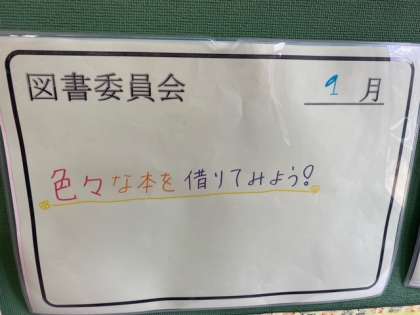 図書委員会
9月
色々な本を借りてみよう!